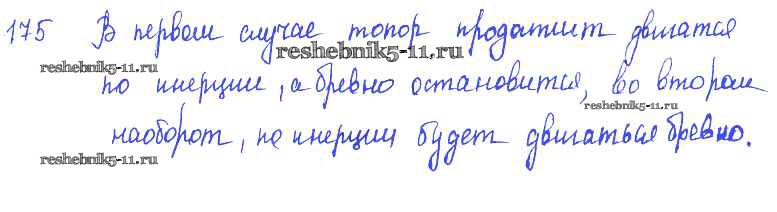 175 В первом случае топор продолжит двигатся
reshebnik5-11.ru
reshebnik5-11.ru
по инерции, а бревно остановится, во втором
reshebnik5-11.ru
наоборот, по инерции будет двигаться бревно.
reshebnik5-11.ru